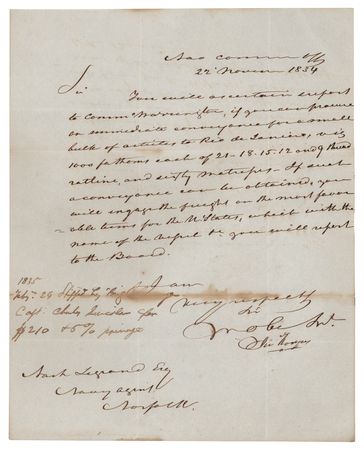 Nav Commrs Off
22 Novem 1834
Sir
You will ascertain & report
to Commo Warrington, if you can procure
an immediate conveyance for a small
bulk of articles to Rio de Janeiro, viz
1000 fathoms each of 21-18-15-12 and 9 thread
ratline, and sixty If such
a conveyance can be obtained, you
will engage the freight on the most favor
able terms for the U States, which with the
name of the vessel &c you will report
to the Board.
I am
very respecty
Sir
yr obt St.
1835
Feby. 24 Shipt by Brig
Capt. Chas for
$210 & 5% primage
Nash Legrand Esq
Navy agent
Norfolk